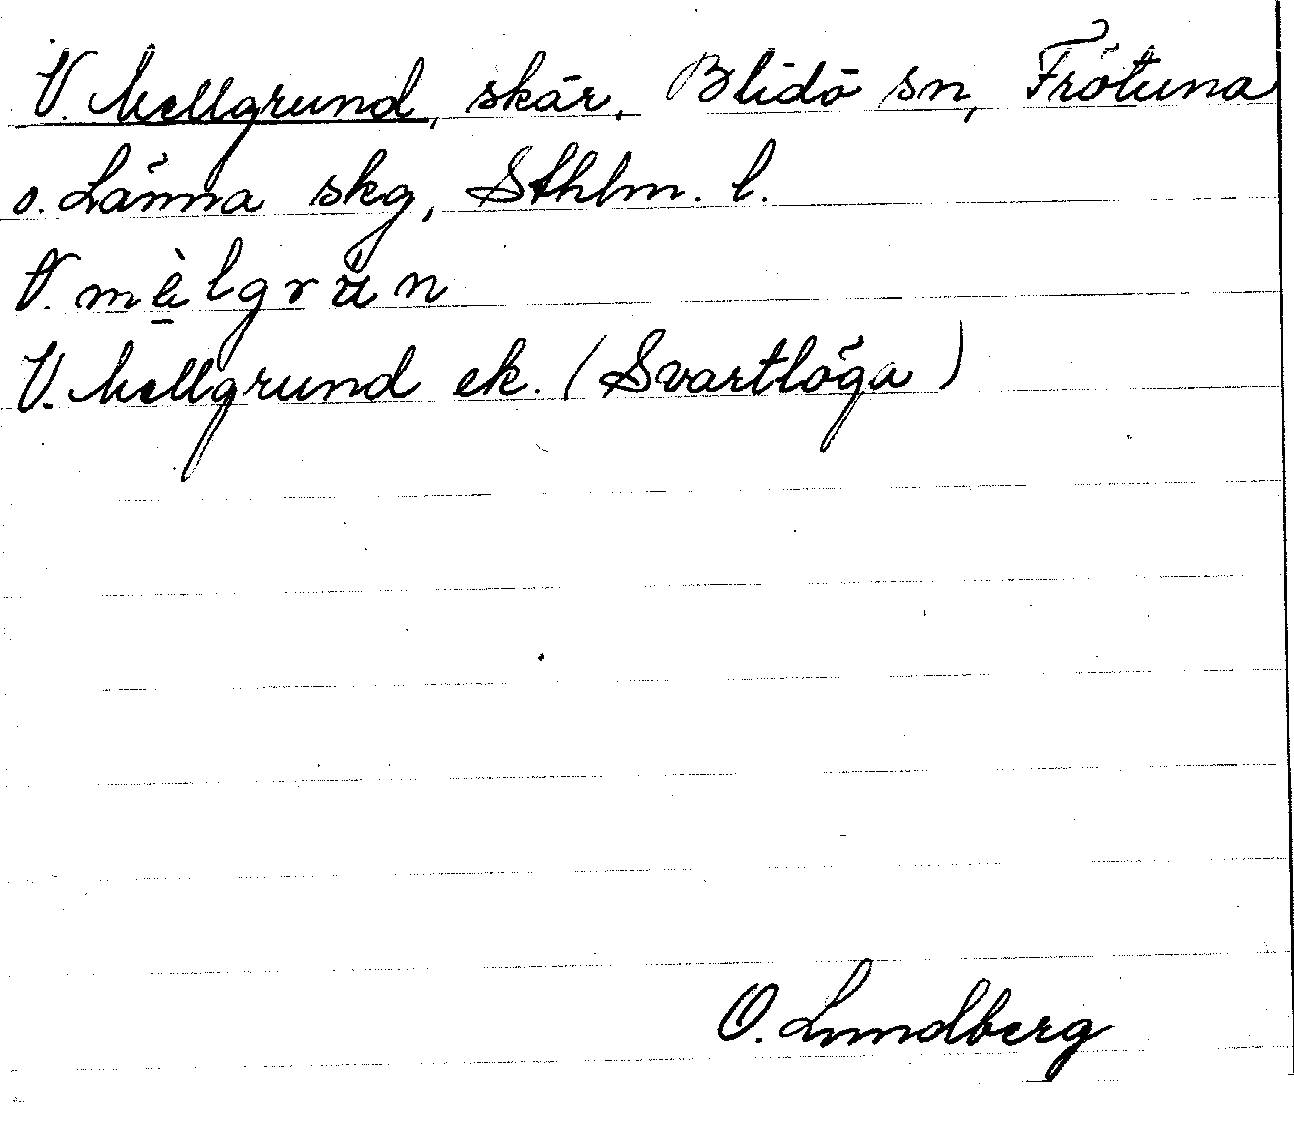 V. Mellgrund, skär, Blidö sn, Frötuna
o. Länna skg, Sthlm. l.
V. mèlgrun
V. Mellgrund ek. (Svartlöga)
O. Lundberg